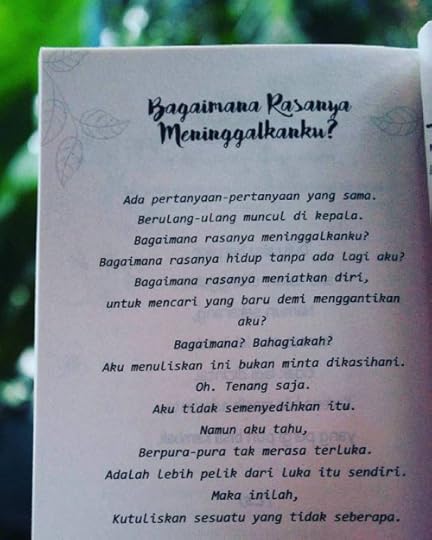 Bagaimana Rasanya
Meninggalkanku?
Ada pertanyaan-pertanyaan yang sama.
Berulang-ulang muncul di kepala.
Bagaimana rasanya meninggalkanku?
Bagaimana rasanya hidup tanpa ada lagi aku?
Bagaimana rasanya meniatkan diri,
untuk mencari yang baru demi menggantikan
aku?
Bagaimana? Bahagiakah?
Aku menuliskan ini bukan minta dikasihani.
Oh. Tenang saja.
Aku tidak semenyedihkan itu.
Namun aku tahu,
Berpura-pura tak merasa terluka.
Adalah lebih pelik dari luka itu sendiri.
Maka inilah,
Kutuliskan sesuatu yang tidak seberapa.